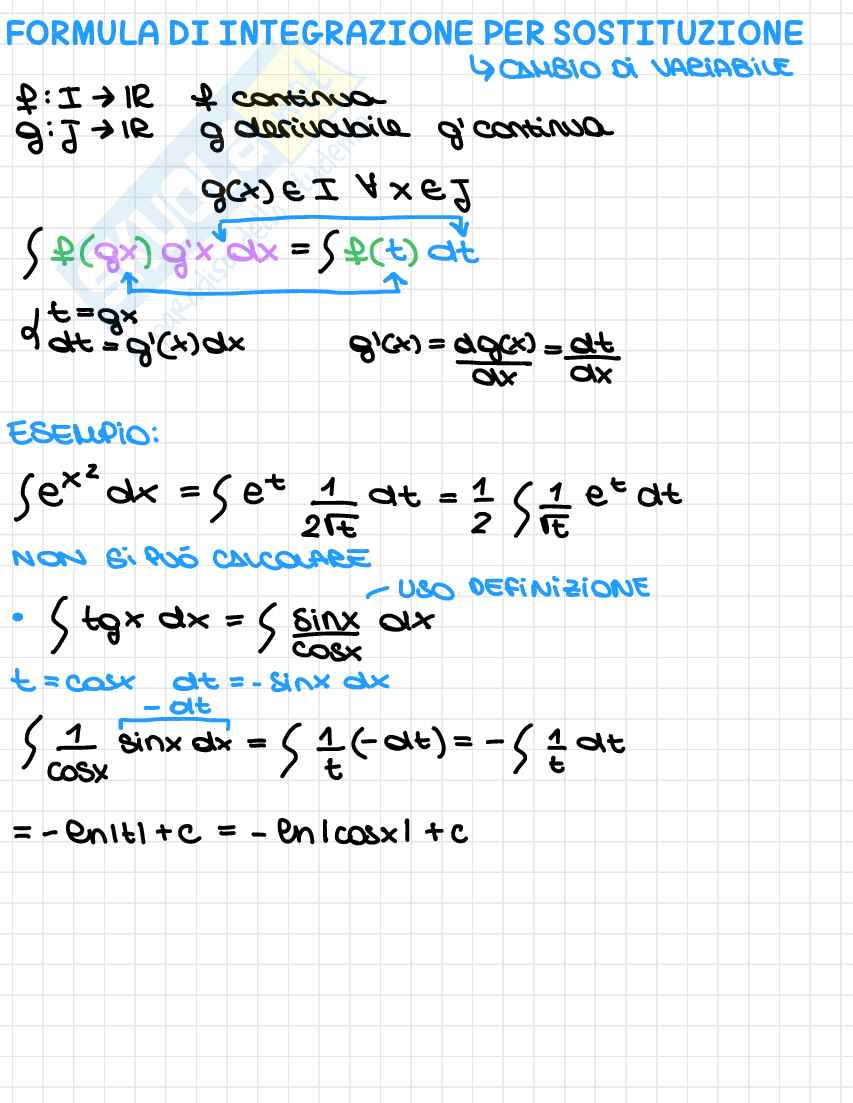 FORMULA DI INTEGRAZIONE PER SOSTITUZIONE
↳ CAMBIO Di VARIABILE
f: I → IR f continua
g: J → IR g derivabile g' continua
g(x) ∈ I ∀ x ∈ J
∫ f(gx) g'x dx = ∫ f(t) dt
{ t = gx
dt = g'(x) dx g'(x) = dg(x)/dx = dt/dx
ESEMPIO:
∫ e^x² dx = ∫ e^t 1/(2√t) dt = 1/2 ∫ 1/√t e^t dt
NON Si PUÓ CALCOLARE
USO DEFiNiZIONE
• ∫ tgx dx = ∫ sinx/cosx dx
t = cosx dt = - sinx dx
- dt
∫ 1/cosx sinx dx = ∫ 1/t (-dt) = - ∫ 1/t dt
= - ln|t| + c = - ln|cosx| + c